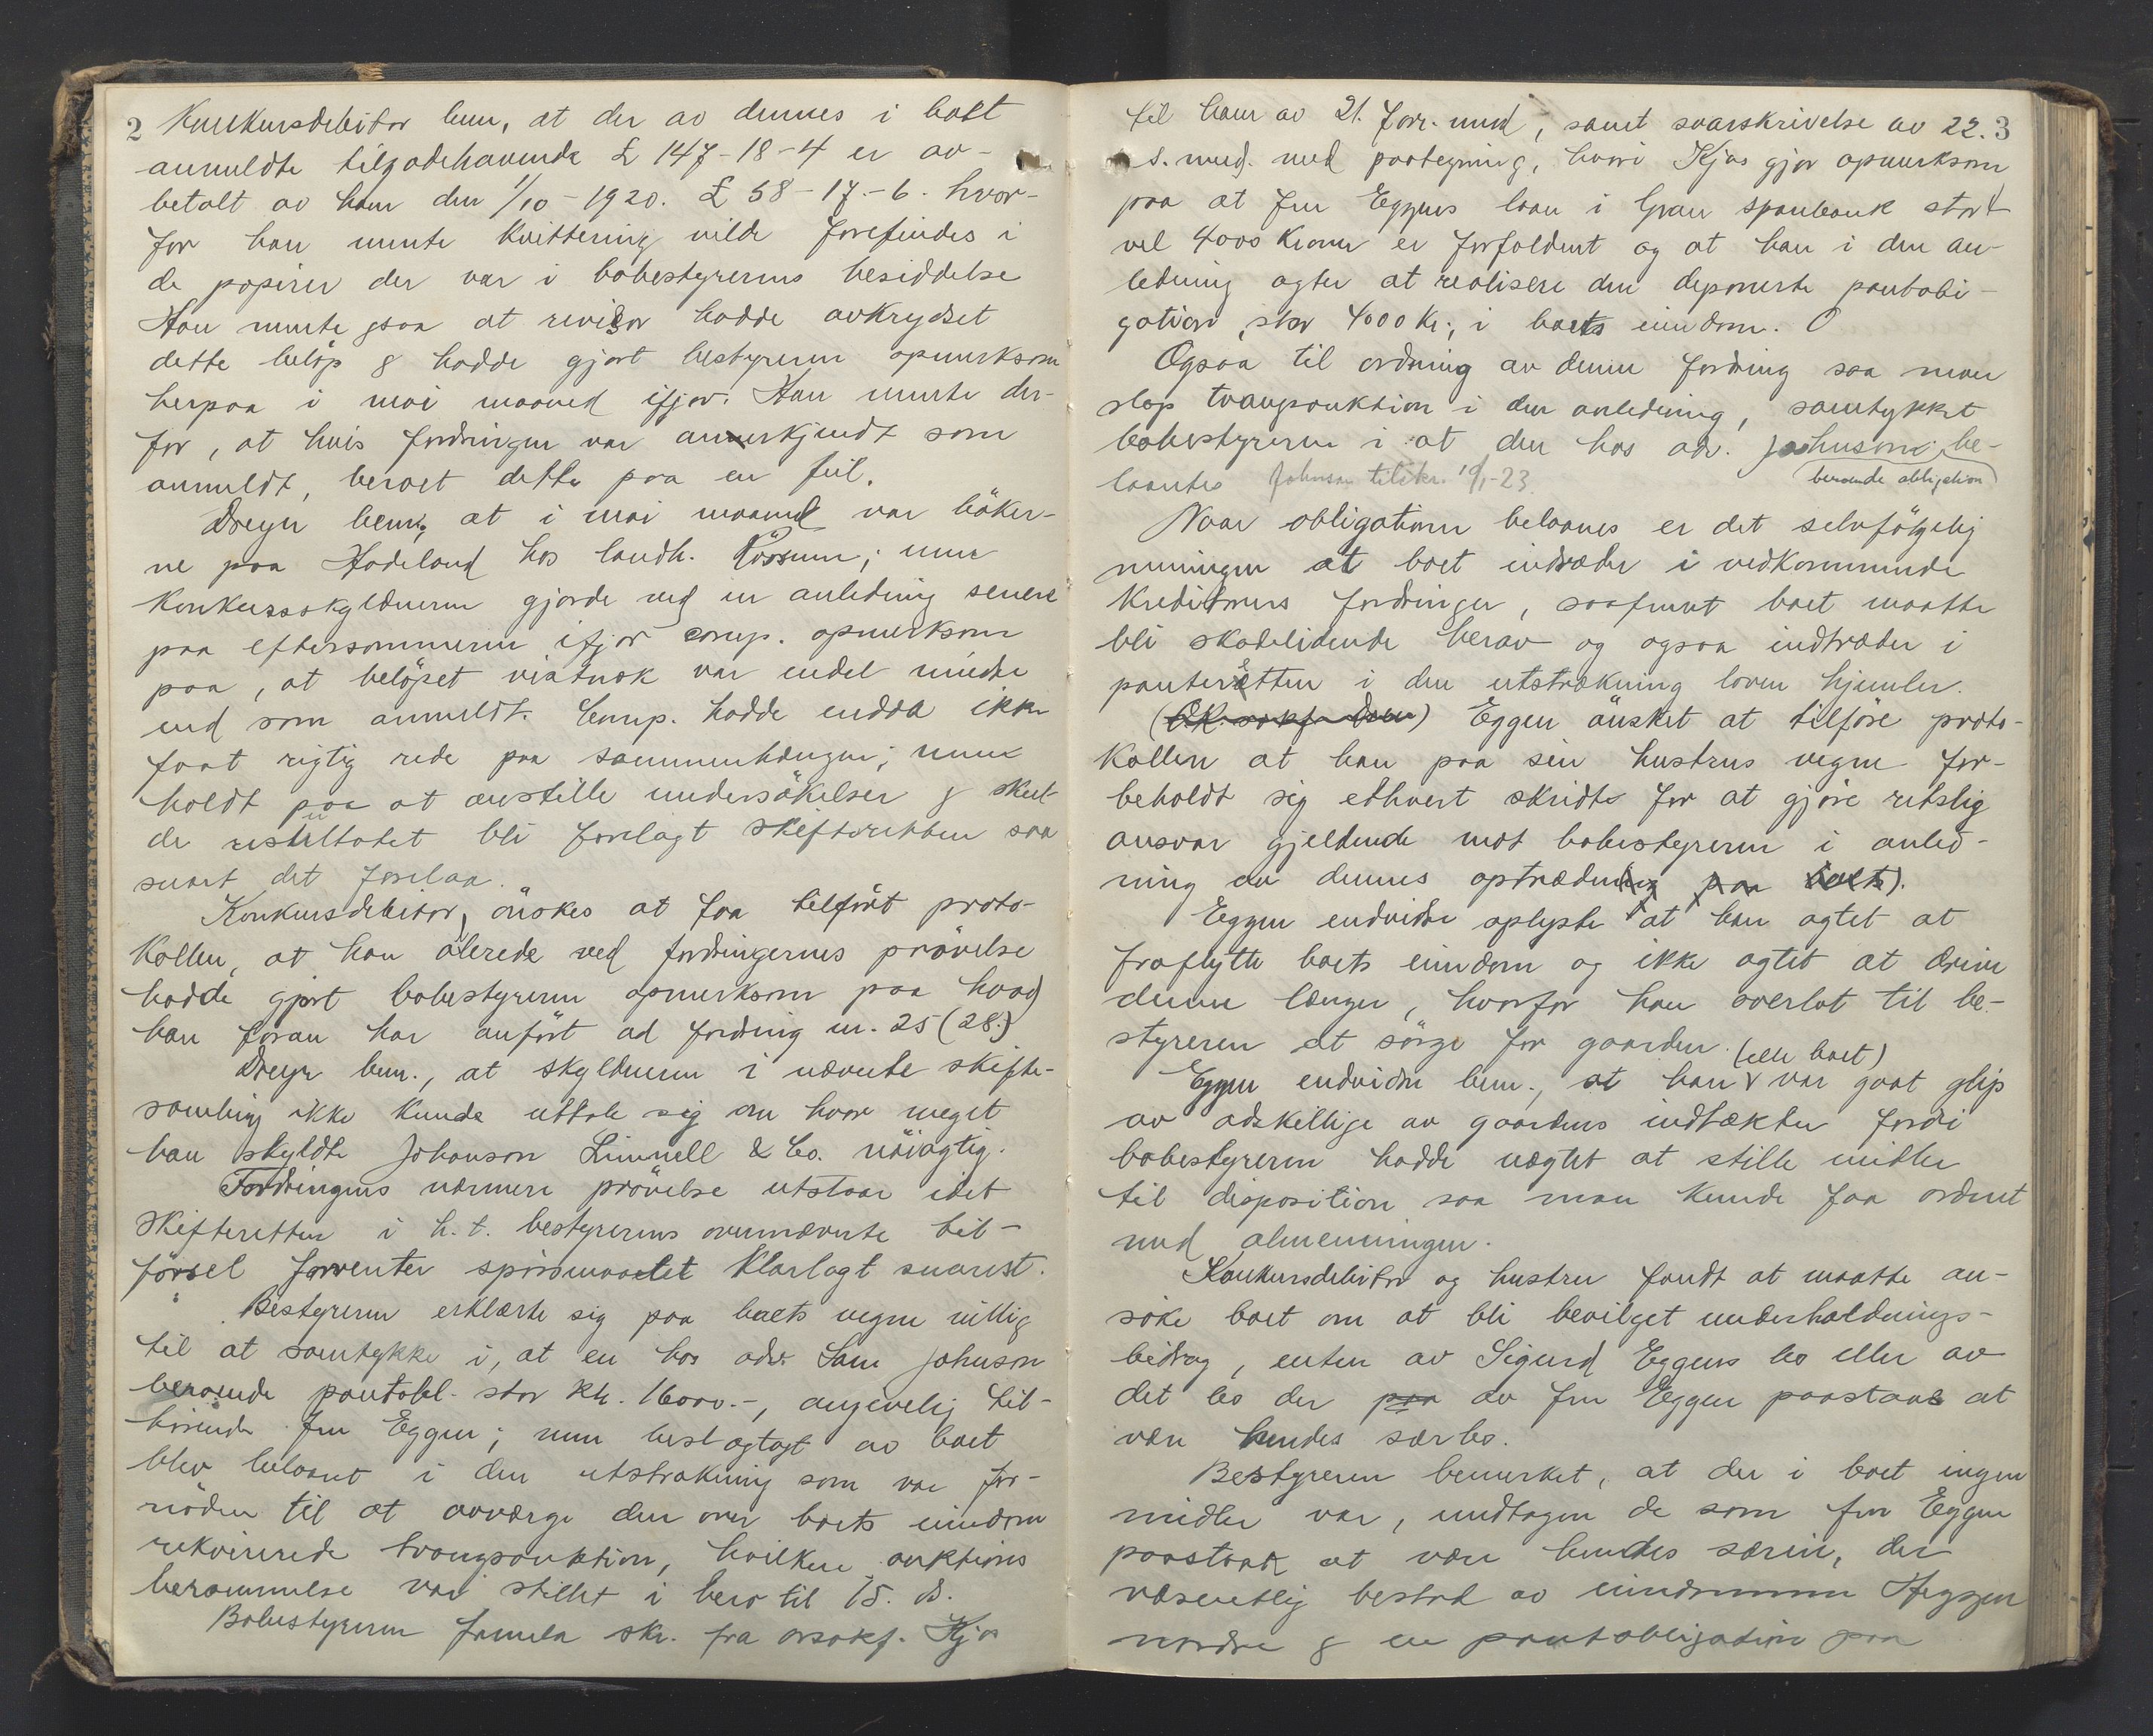 2 Konkursdebitor bem, at der av dennes i boet
anmeldte tilgodehavende £ 147-18-4 er av-
betalt av ham den 1/10-1920. £ 58-17-6. hvor-
for han mente kvittering vilde forefindes i
de papirer der var i bobestyrerens besiddelse
Han mente ogsaa at revisor hadde avkrydset
dette beløp & hadde gjort bestyreren opmerksom
herpaa i mai maaned ifjor. Han mente der-
for, at hvis fordringen var anerkjendt som
anmeldt, beroet dette paa en feil.
Dreyer bem, at i mai maaned var böker-
ne paa Hadeland hos landh. Rossum; men
konkursskyldneren gjorde ved en anledning senere
paa eftersommeren ifjor comp. opmerksom
paa, at belöpet vistnok var endel mindre
end som anmeldt. Comp. hadde endda ikke
faat rigtig rede paa sammenhængen; men
holdt paa at anstille undersökelser & skul-
de resultatet bli forelagt skifteretten saa
snart det forelaa.
Konkursdebitor, önskes at faa tilfört proto-
kollen, at han allerede ved fordringernes prövelse
hadde gjort bobestyreren opmerksom paa hvad
han foran har anfört ad fordring nr. 25 (28.)
Dreyer bem., at skyldneren i nævnte skifte-
samling ikke kunde uttale sig om hvor meget
han skyldte Johanson Linnell & Co. nöiagtig.
Fordringens nærmere prövelse utstaar idet
skifteretten i h. t. bestyrerens ovennævnte til-
försel forventer spörsmaalet klarlagt snarest.
Bestyreren erklærte sig paa boets vegne villig
til at samtykke i, at en hos adv. Sam Johnson
beroende pantobl. stor kr. 16000.-, angivelig til-
hörende fru Eggen; men beslaglagt av boet
blev belaant i den utstrækning som var for-
nöden til at avværge den over boets eiendom
rekvirerede tvangsauktion, hvilken auktions
berammelse var stillet i bero til 15. ds.
Bobestyreren fremla skr. fra orsakf. Kjos
til ham av 21. forr. mnd, samt svarskrivelse av 22. 3
s. mnd. med paategning, hvori Kjos gjør opmerksom
paa at fru Eggens laan i Gran sparebank stort
vel 4000 kroner er forfaldent og at han i den an-
ledning agter at realisere den deponerte pantobli-
gation, stor 4000 kr., i boets eiendom.
Ogsaa til ordning av denne fordring saa man
slap tvangsauktion i den anledning, samtykket
bobestyreren i at den hos adv. Johnson be-
beroende obligation
laantes Johnson tilskr. 10/1-23.
Naar obligationen belaanes er det selvfölgelig
meningen at boet indtræder i vedkommende
kreditorers fordringer, saafremt boet maatte
bli skadelidende herav og ogsaa indtræder i
panteretten i den utstrækning loven hjemler.
Eggen önsket at tilföre proto-
kollen at han paa sin hustrus vegne for-
beholdt sig ethvert skridt for at gjöre retslig
ansvar gjeldende mot bobestyreren i anled-
ning av dennes optræden
Eggen endvidre oplyste at han agtet at
fraflytte boets eiendom og ikke agtet at drive
denne længer, hvorfor han overlot til be-
styreren at sörge for gaarden.
(eller boet)
Eggen endvidere bem., at han var gaat glip
av adskillige av gaardens indtækter fordi
bobestyreren hadde nægtet at stille midler
til disposition saa man kunde faa ordnet
med almenningen.
Konkursdebitor og hustru fandt at maatte an-
söke boet om at bli bevilget underholdnings-
bidrag, enten av Sigurd Eggens bo eller av
det bo der paa av fru Eggen paastaaes at
være hendes særbo.
Bestyreren bemerket, at der i boet ingen
midler var, undtagen de som fru Eggen
paastaar at være hendes særeie, der
væsentlig bestod av eiendommen Heggen
nordre & en pantobligation paa